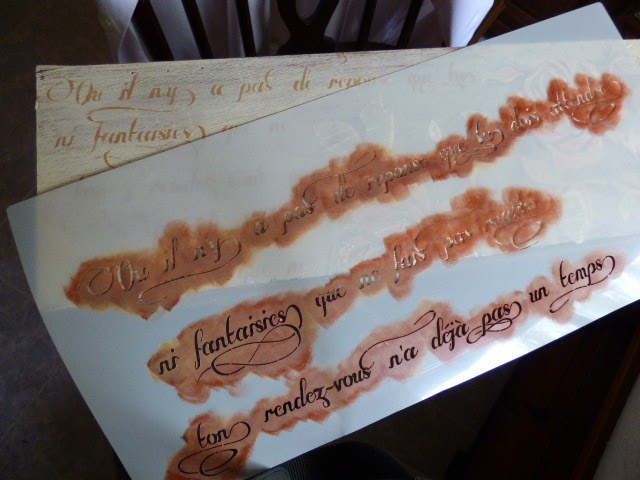 Ou il n'y a pas de repons que
ni fantaisies
Ou il n'y a pas de repons que tes dois
ni fantaisies que ne fais pas
ton rendez-vous n'a déjà pas un temps